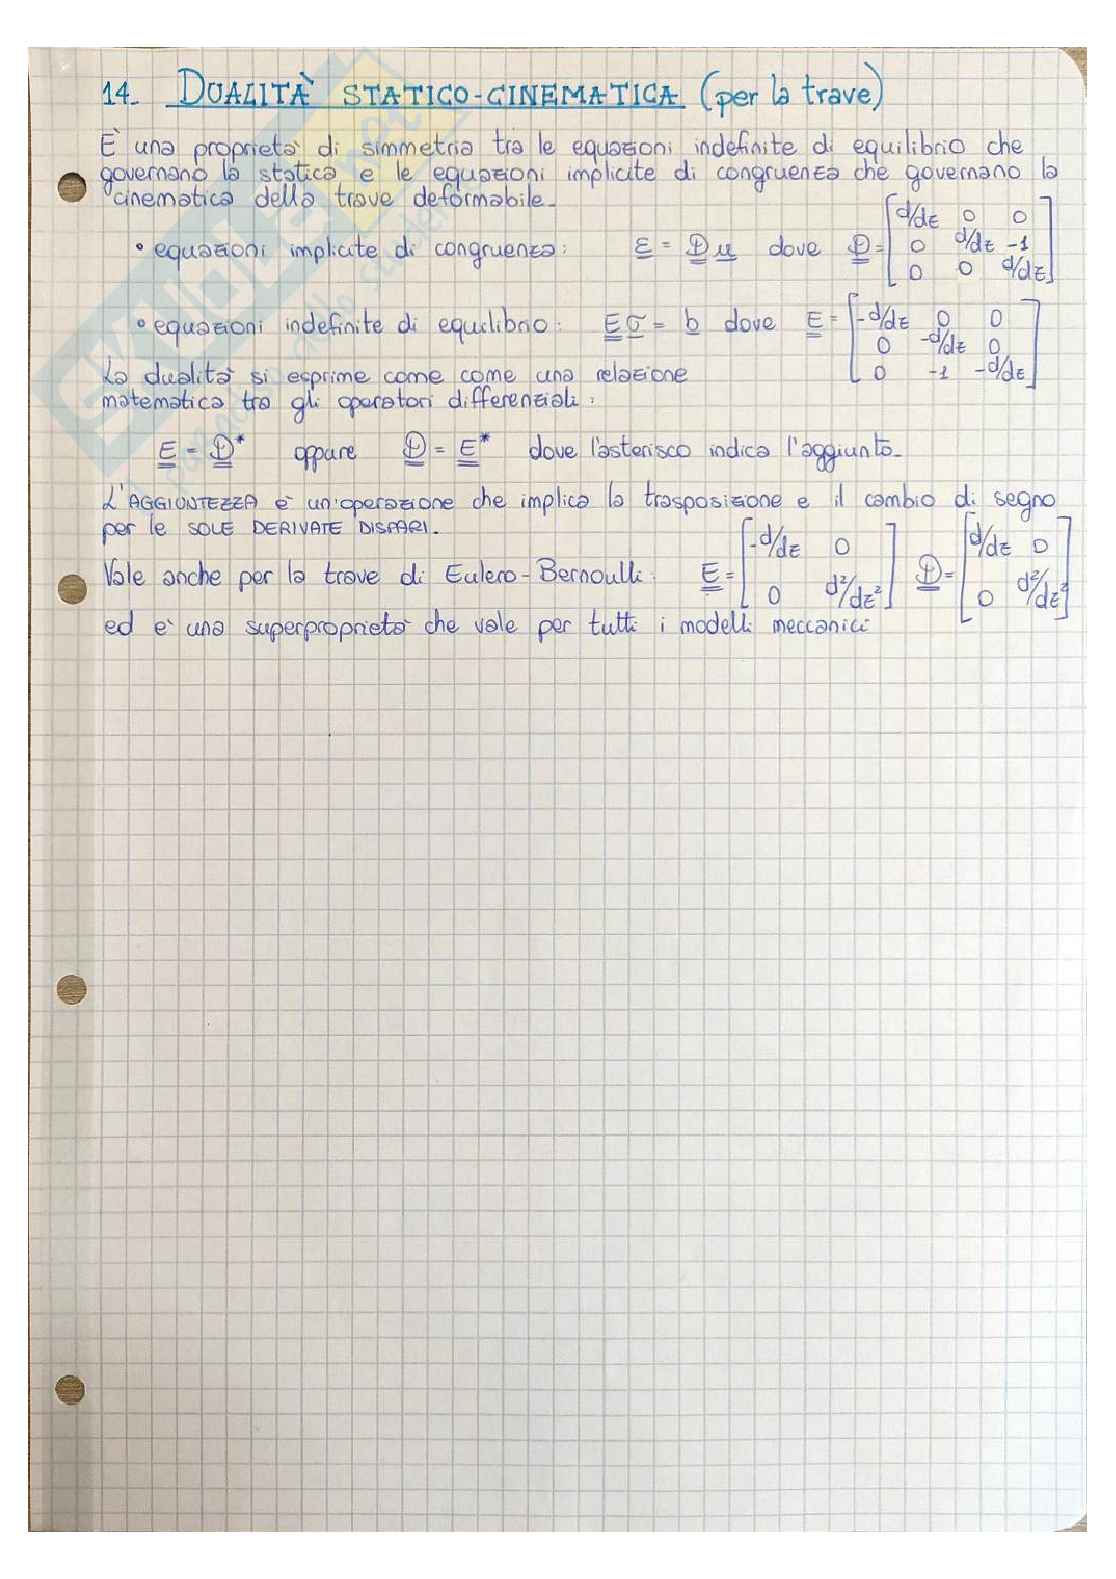 14. DUALITÀ STATICO-CINEMATICA (per la trave)
È una proprietà di simmetria tra le equazioni indefinite di equilibrio che
governano la statica e le equazioni implicite di congruenza che governano la
cinematica della trave deformabile.
• equazioni implicite di congruenza: ε = D u dove D = [d/dz 0 0
0 d/dz -1
0 0 d/dz]
• equazioni indefinite di equilibrio: E σ = b dove E = [-d/dz 0 0
0 -d/dz 0
0 -1 -d/dz]
La dualità si esprime come come una relazione
matematica tra gli operatori differenziali:
E = D* oppure D = E* dove l'asterisco indica l'aggiunto.
L'AGGIUNTEZZA è un'operazione che implica la trasposizione e il cambio di segno
per le SOLE DERIVATE DISPARI.
Vale anche per la trave di Eulero-Bernoulli: E = [-d/dz 0
0 d²/dz²] D = [d/dz 0
0 d²/dz²]
ed è una superproprietà che vale per tutti i modelli meccanici